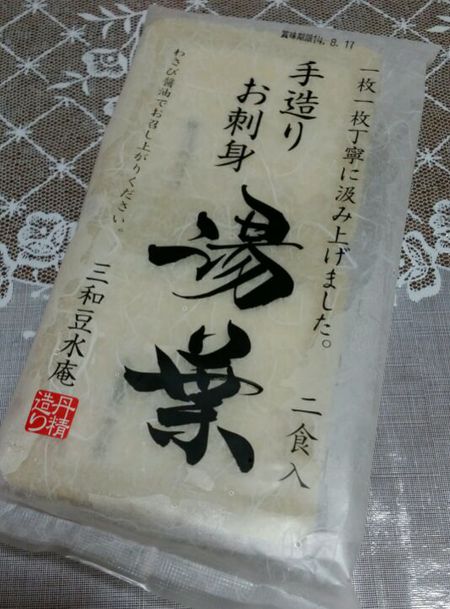 賞味期限14.8.17
一枚一枚丁寧に汲み上げました。
手造り
お刺身
わさび醤油でお召し上がりください。
湯葉
二食入
三和豆水庵
丹精
造り